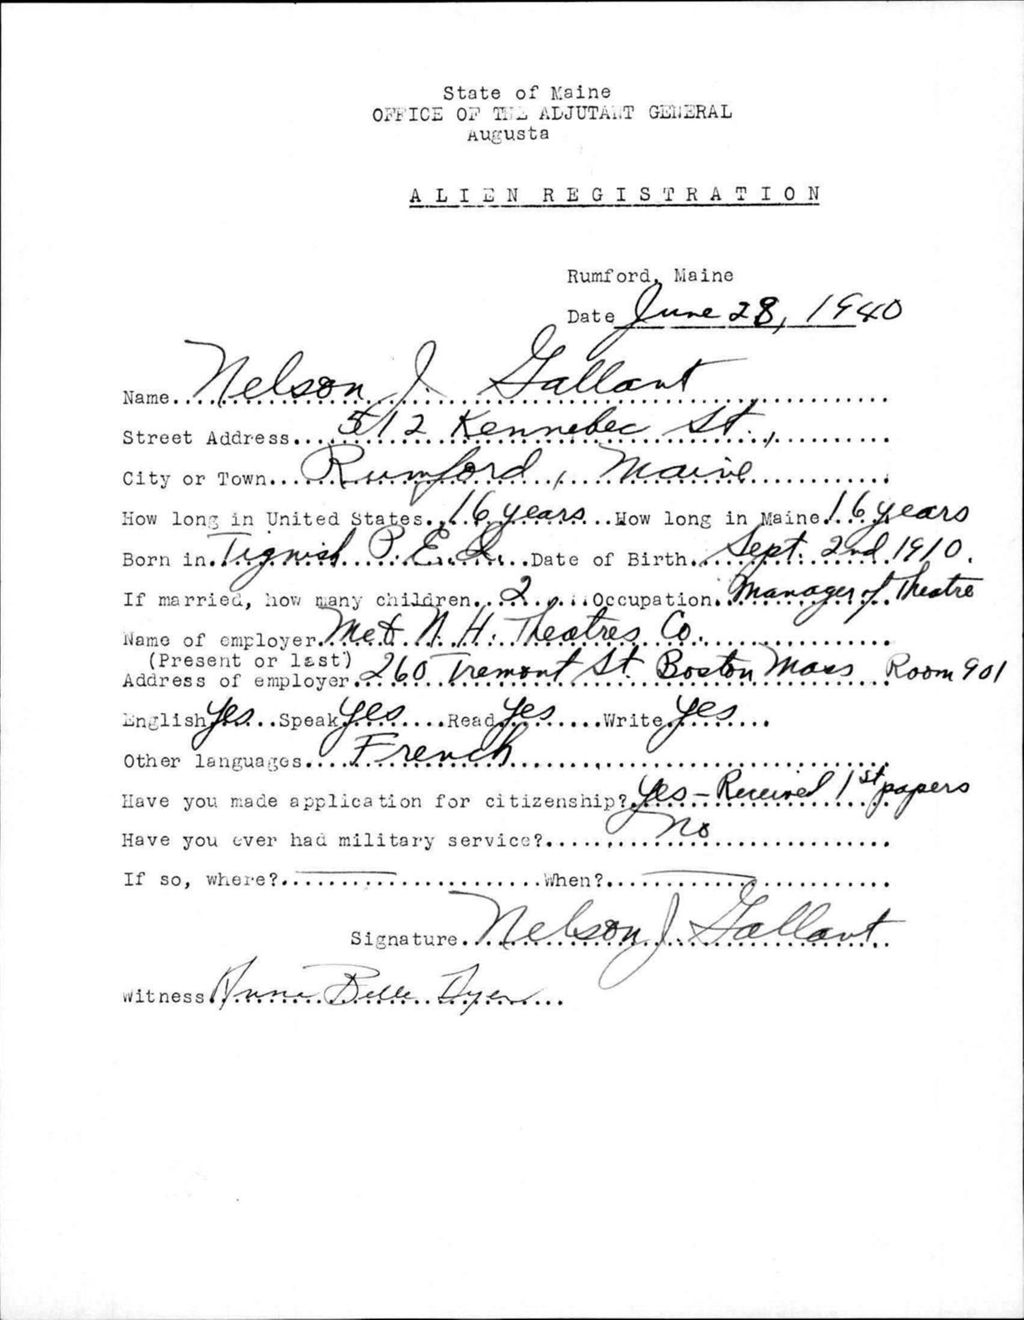 State of Maine
OFFICE OF THE ADJUTANT GENERAL
Augusta
ALIEN REGISTRATION
Rumford, Maine
Date June 28, 1940
Name Nelson J. Gallant
Street Address 512 Kennebec St.,
City or Town Rumford, Maine
How long in United States 16 years How long in Maine 16 years
Born in Tignish P.E.I. Date of Birth Sept. 2nd 1910.
If married, how many children 2 Occupation Manager of Theatre
Name of employer Me & N.H. Theatres Co.
(Present or last)
Address of employer 260 Tremont St. Boston Mass Room 901
English Yes Speak Yes Read Yes Write Yes
Other languages French
Have you made application for citizenship? Yes - Received 1st papers
Have you ever had military service? No
If so, where? When?
Signature Nelson J. Gallant
Witness Anna Belle Dyer